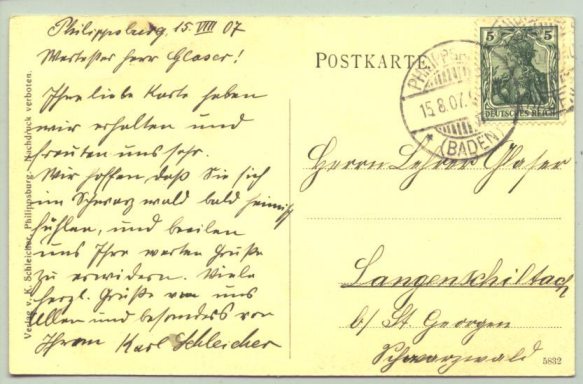 Philippsburg, 15. VIII 07
Wertester Herr Glaser!
Ihre liebe Karte haben
wir erhalten und
freuten uns sehr.
Wir hoffen daß Sie sich
im Schwarzwald bald heimisch
fühlen, und beeilen
uns Ihre werten Grüße
zu erwidern. Viele
herzl. Grüße von uns
Allen und besonders von
Ihrem Karl Schleicher
Verlag v. K. Schleicher, Philippsburg. Nachdruck verboten.
POSTKARTE
5 5
DEUTSCHES REICH
15.8.07.
(BADEN)
Herrn Lehrer Glaser
Langenschiltach
b/ St. Georgen
Schwarzwald
5832